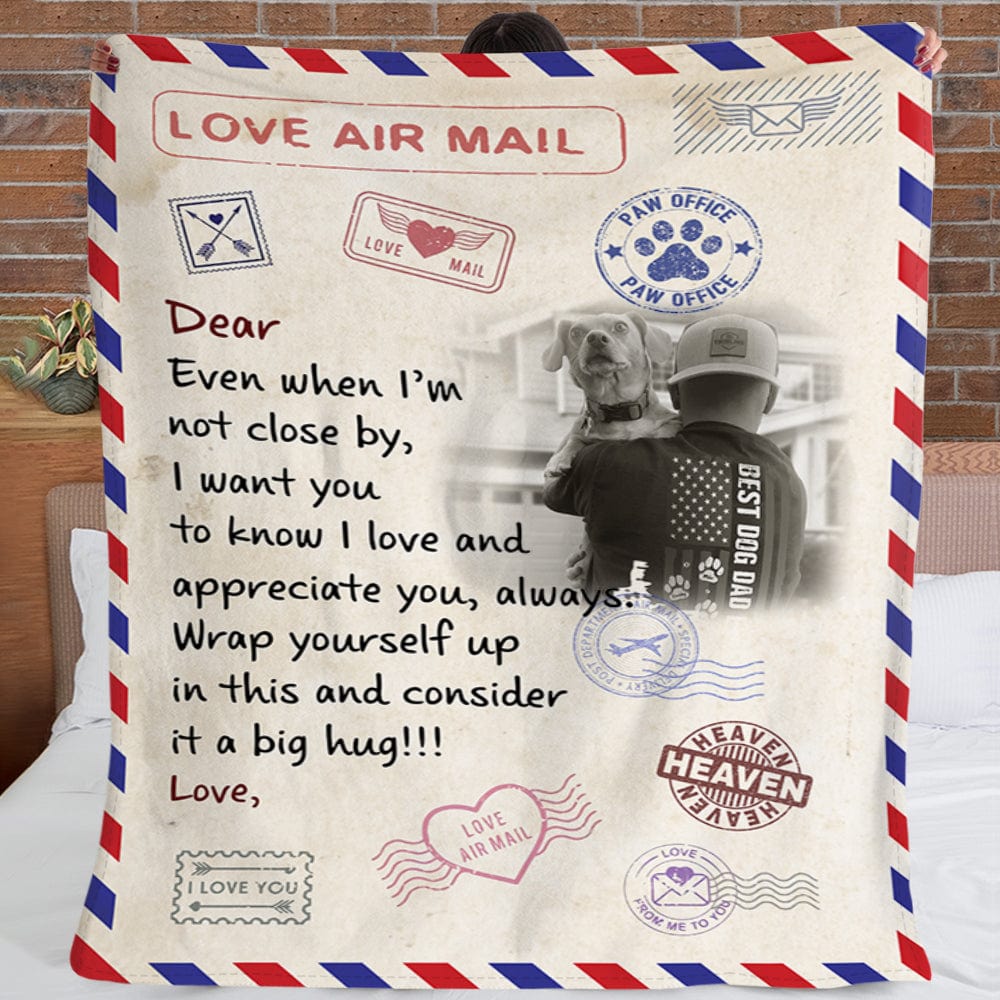 LOVE AIR MAIL
LOVE MAIL
PAW OFFICE
PAW OFFICE
Dear
Even when I'm
not close by,
I want you
to know I love and
appreciate you, always.
Wrap yourself up
in this and consider
it a big hug!!!
Love,
BEST DOG DAD
POST DEPARTMENT • AIR MAIL • SPECIAL DELIVERY •
HEAVEN
HEAVEN
HEAVEN
LOVE
AIR MAIL
I LOVE YOU
LOVE
FROM ME TO YOU